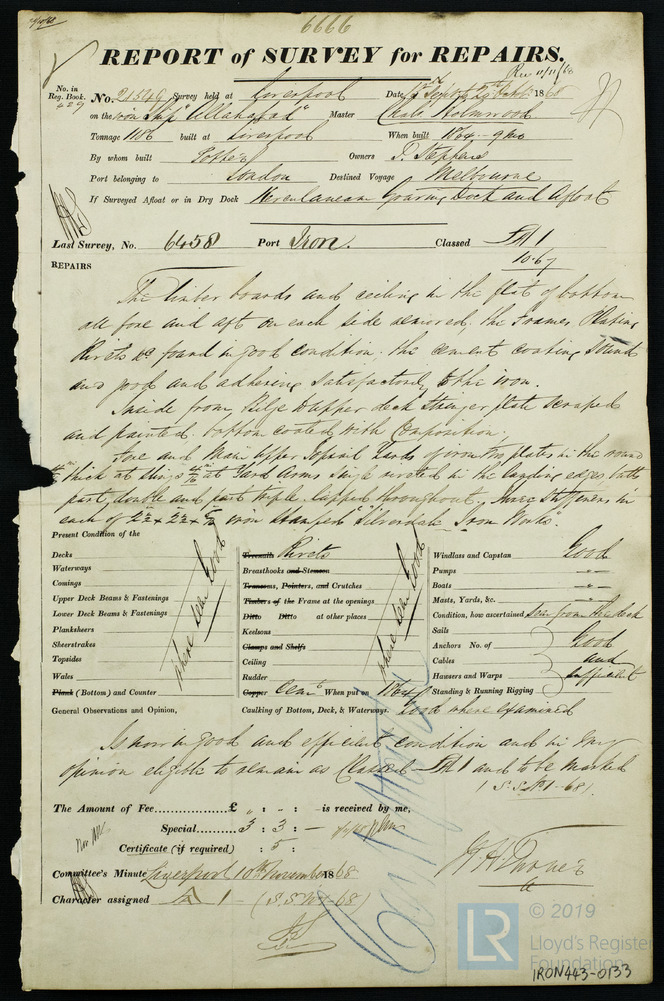 6666
REPORT of SURVEY for REPAIRS.
Rec 11/11/68
No. in Reg. Book. 429
No. 21549 Survey held at Liverpool Date, Sept 1868
on the iron Ship "Allahabad" Master Chas. Holmwood
Tonnage 1186 built at Liverpool When built 1864 - 9 mo
By whom built Potter Owners
Port belonging to London Destined Voyage Melbourne
If Surveyed Afloat or in Dry Dock Herculaneum Graving Dock and Afloat
Last Survey, No. 6458 Port Iron. Classed A 1
10.67
REPAIRS
The timber boards and ceiling in the flat of bottom
all fore and aft on each side removed. the Frames Plating
Rivets &c found in good condition. the cement coating sound
and good and adhering satisfactorily to the iron.
Inside from Bilge to upper deck stringer plate scraped
and painted. bottom coated with Composition.
Fore and Main Upper Topsail Yards of iron two plates in the round
thick at slings at Yard Arms single riveted in the landing edges butts
part double and part triple. lapped throughout. three Stiffeners in
each of iron stamped "Silverdale Iron Works".
Present Condition of the
Decks
Waterways
Comings
Upper Deck Beams & Fastenings
Lower Deck Beams & Fastenings
Planksheers
Sheerstrakes
Topsides
Wales
Plank (Bottom) and Counter
where seen Good
Treenails Rivets
Breasthooks and Stemson
Transoms, Pointers, and Crutches
Timbers of the Frame at the openings
Ditto Ditto at other places
Keelsons
Clamps and Shelfs
Ceiling
Rudder
Copper Cemt. When put on 1864
where seen Good
Windlass and Capstan Good
Pumps "
Boats "
Masts, Yards, &c. "
Condition, how ascertained Seen from the deck
Sails
Anchors No. of
Cables
Hawsers and Warps
Standing & Running Rigging
Good and sufficient
General Observations and Opinion, Caulking of Bottom, Deck, & Waterways. Good where examined
Is now in good and efficient condition and in my
opinion eligible to remain as Classed A 1 and to be marked
S.S. No 1 - 68.
The Amount of Fee............... £ " : " : - is received by me,
Special......... 3 : 3 : -
Certificate (if required) : 5 :
Committee's Minute Liverpool 10th November 1868
Character assigned A 1 - (S.S. No 1 - 68)
LR
© 2019
Lloyd's Register
Foundation
IRON443-0133